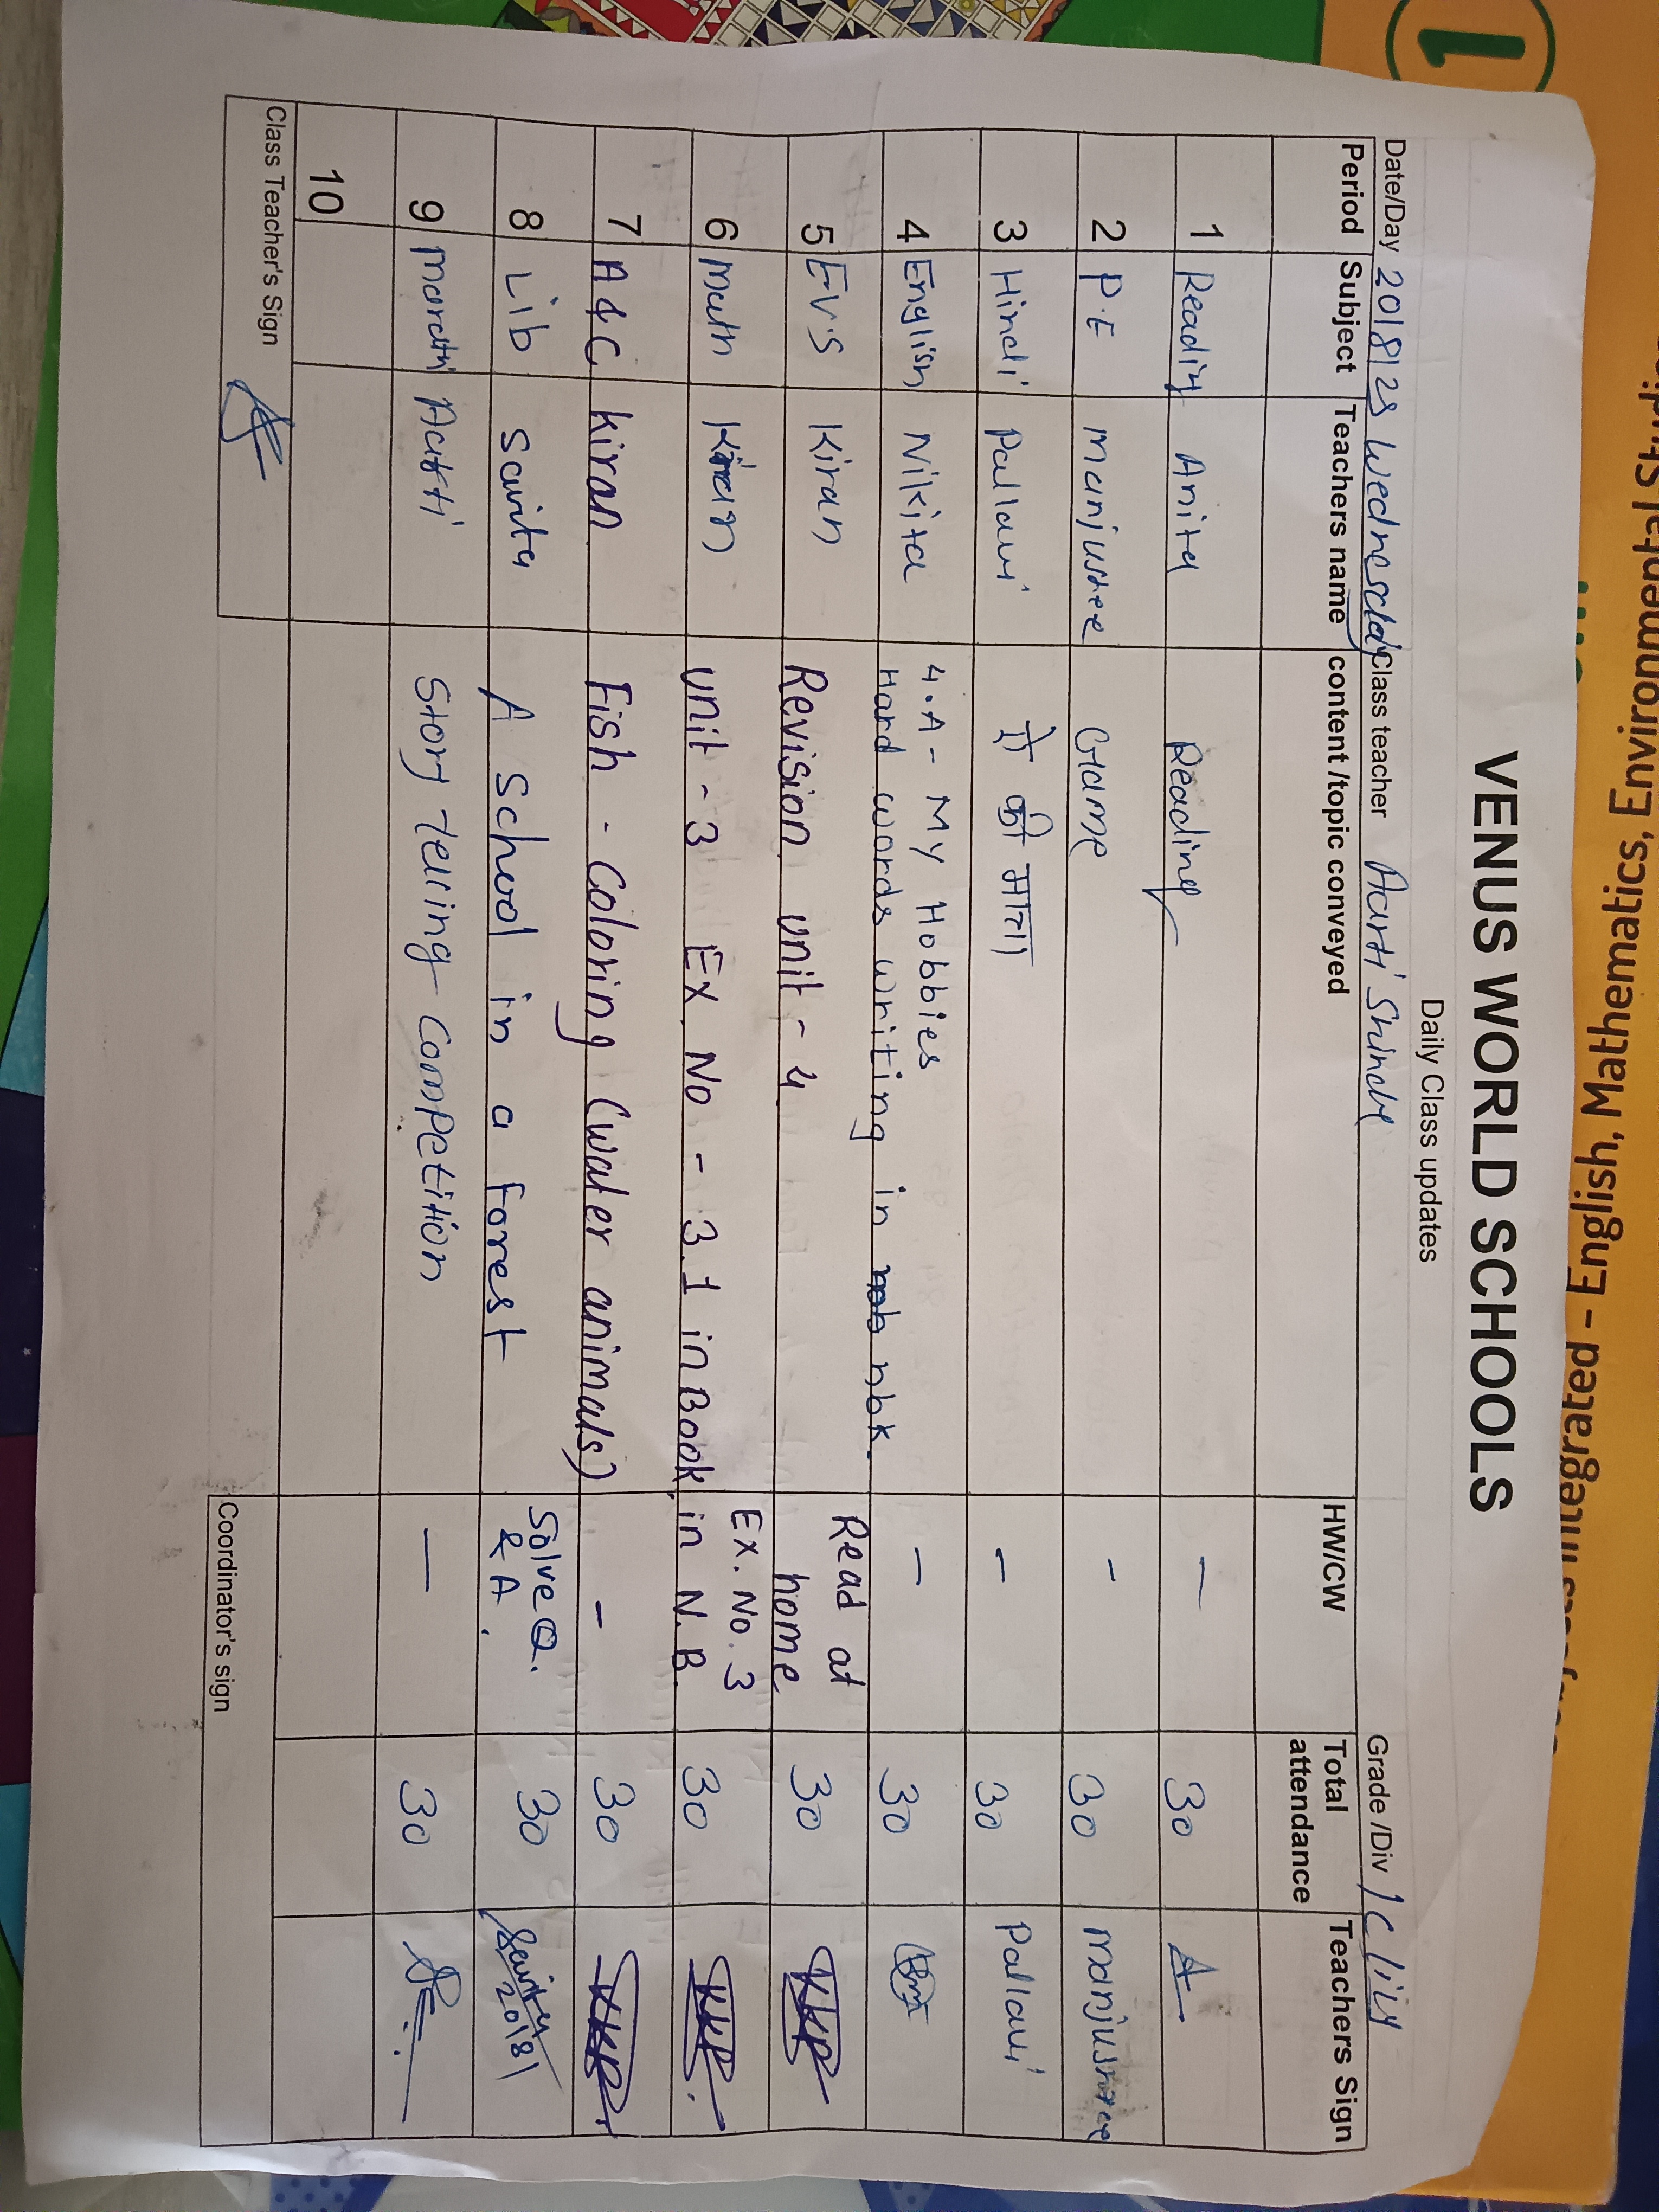 VENUS WORLD SCHOOLS
Daily Class updates
Date/Day 20/8/25 Wednesday Class teacher Aarti Shinde Grade /Div 1C lily
Period Subject Teachers name content /topic conveyed HW/CW Total attendance Teachers Sign
1 Reading Anita Reading — 30 A
2 P.E manjushree Game - 30 manjushree
3 Hindi Pallavi की मात्रा - 30 Pallavi
4 English Nikita 4.A - My Hobbies
Hard words writing in nbk. - 30
5 EVS Kiran Revision unit - 4 Read at home 30
6 Math Kiran unit - 3 Ex. No - 3.1 in Book, Ex. No. 3 in N.B. 30
7 A&C kiran Fish - Coloring (water animals) - 30
8 Lib Savita A School in a forest Solve Q. & A. 30 Savita 20/8/
9 marathi Aarti Story Telling Competition — 30
10
Class Teacher's Sign
Coordinator's sign
1
- English, Mathematics, Environmental Studies